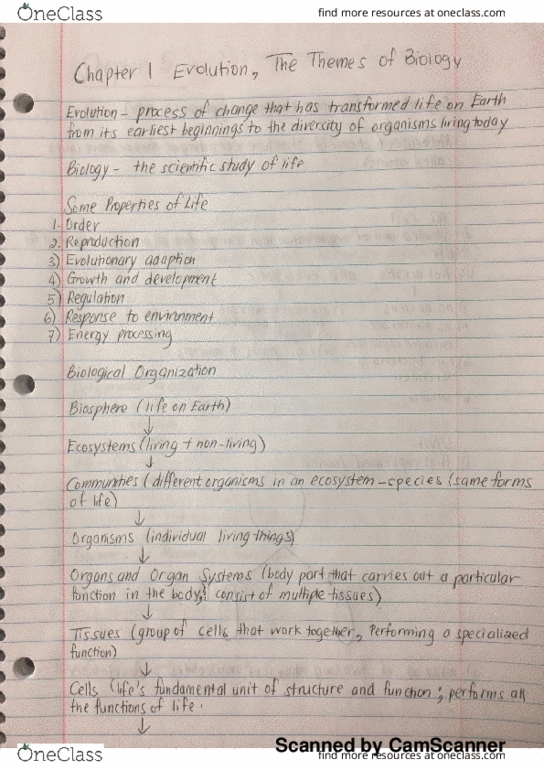 OneClass
find more resources at oneclass.com
Chapter 1 Evolution, The Themes of Biology
Evolution - process of change that has transformed life on Earth
from its earliest beginnings to the diversity of organisms living today
Biology - the scientific study of life
Some Properties of Life
1. Order
2. Reproduction
3) Evolutionary adaption
4) Growth and development
5) Regulation
6) Response to environment
7) Energy processing
Biological Organization
Biosphere (life on Earth)
↓
Ecosystems (living + non-living)
↓
Communities (different organisms in an ecosystem - species (same forms
of life)
↓
Organisms (individual living things)
↓
Organs and Organ Systems (body part that carries out a particular
function in the body, consist of multiple tissues)
↓
Tissues (group of cells that work together, Performing a specialized
function)
↓
Cells (life's fundamental unit of structure and function; performs all
the functions of life.
↓
OneClass
Scanned by CamScanner
find more resources at oneclass.com